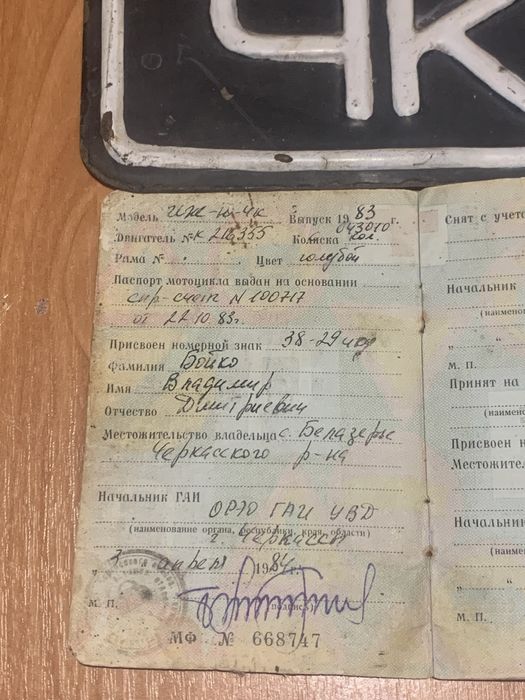 ЧК
Модель Иж-Ю-4к Выпуск 1983 г.
Двигатель № К 216355 Коляска 043010 кол.
Рама № Цвет голубой
Паспорт мотоцикла выдан на основании
спр-счета N 100717
от 22.10.83г.
Присвоен номерной знак 38-29 чкд
Фамилия Бойко
Имя Владимир
Отчество Дмитриевич
Местожительство владельца с. Белазерье
Черкасского р-на
Начальник ГАИ ОРЭО ГАИ УВД
(наименование органа, республики, края, области)
г. Черкассы
„ 3 апреля 1984г.
М. П. (подпись)
МФ № 668747
Снят с учета
Начальник
(наимено
„ „
М. П.
Принят на
(наимено
Присвоен н
Местожител
Начальник
(наимен
„ „
М. П.